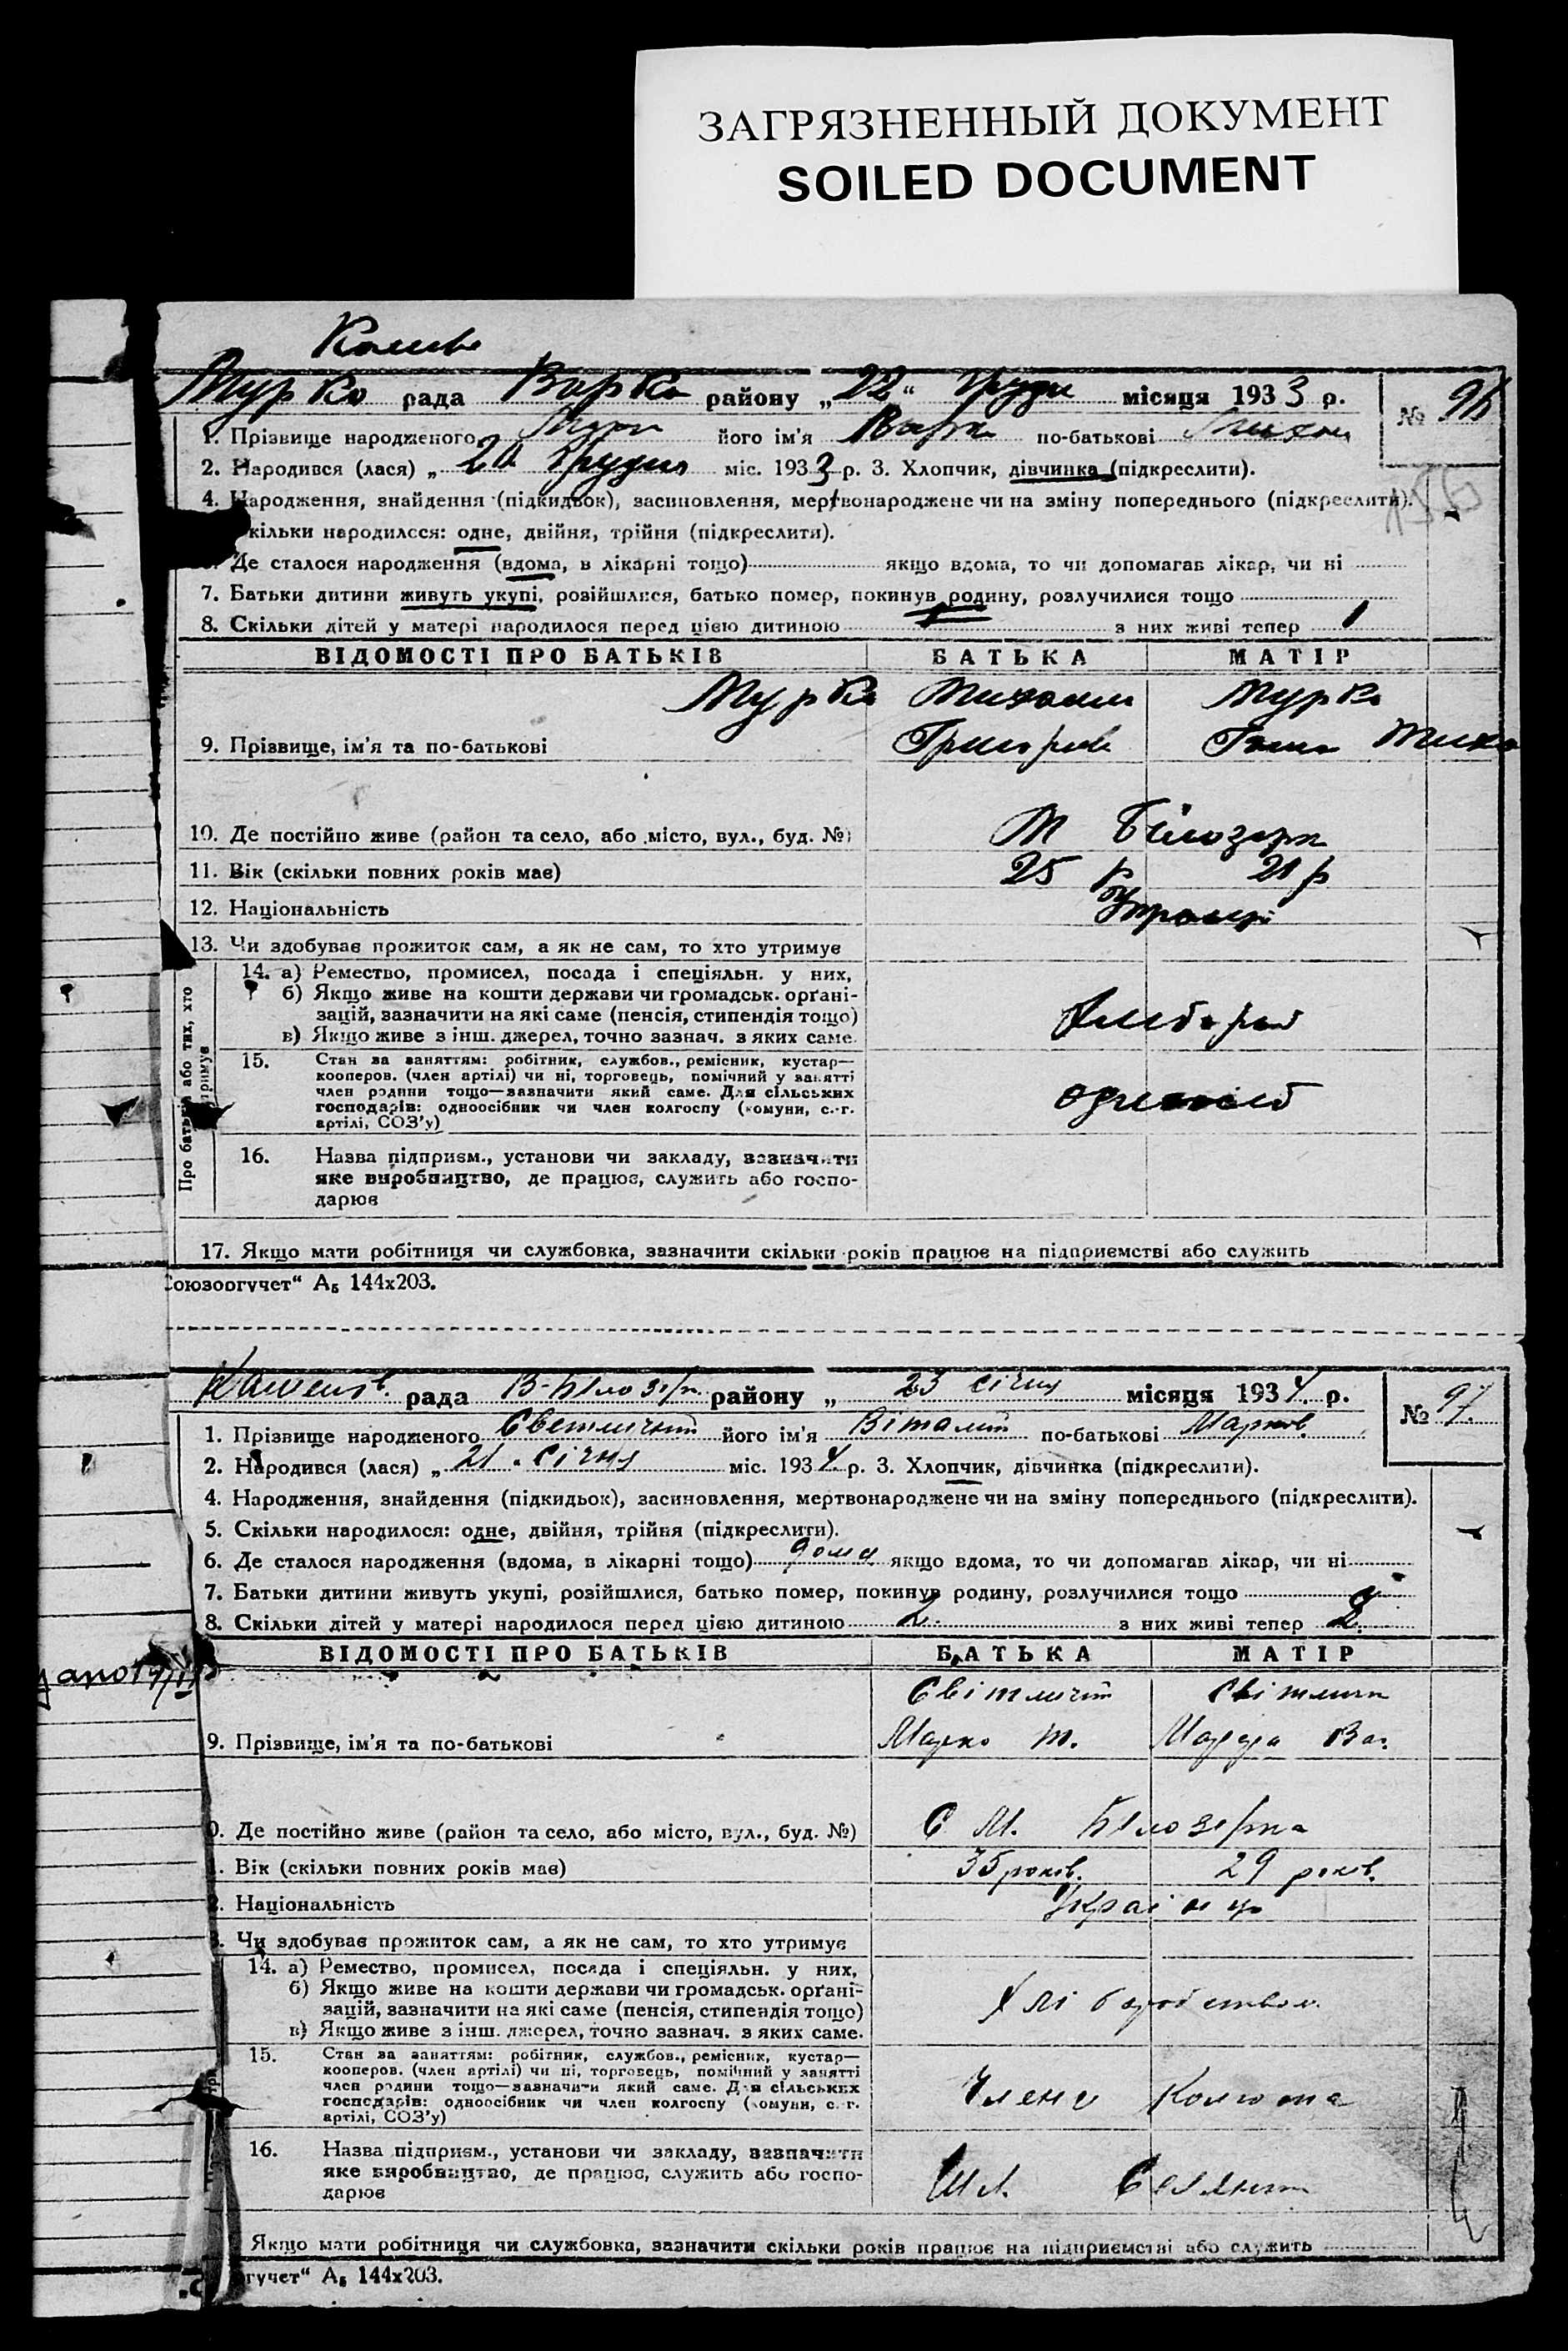 ЗАГРЯЗНЕННЫЙ ДОКУМЕНТ
SOILED DOCUMENT
Мурко рада Варка району „22“ Грудн місяця 1933 р.
№ 96
1. Прізвище народженого Мурко його ім'я Варка по-батькові
2. Народився (лася) „ 20 Грудня міс. 1933 р. 3. Хлопчик, дівчинка (підкреслити).
4. Народження, знайдення (підкидьок), засиновлення, мертвонароджене чи на зміну попереднього (підкреслити).
кільки народилося: одне, двійня, трійня (підкреслити).
Де сталося народження (вдома, в лікарні тощо) якщо вдома, то чи допомагав лікар, чи ні
7. Батьки дитини живуть укупі, розійшлися, батько помер, покинув родину, розлучилися тощо
8. Скільки дітей у матері народилося перед цією дитиною 1 з них живі тепер 1
ВІДОМОСТІ ПРО БАТЬКІВ БАТЬКА МАТІР
Мурко Михаил Мурко
9. Прізвище, ім'я та по-батькові Григоров Ганна Миха
10. Де постійно живе (район та село, або місто, вул., буд. №) М Білозерк
11. Вік (скільки повних років має) 25 р 21 р
12. Національність
13. Чи здобував прожиток сам, а як не сам, то хто утримує
14. а) Ремество, промисел, посада і спеціяльн. у них,
б) Якщо живе на кошти держави чи громадськ. орґані-
зацій, зазначити на які саме (пенсія, стипендія тощо)
в) Якщо живе з інш. джерел, точно зазнач. з яких саме.
Хлибороб
15. Стан за заняттям: робітник, службов., ремісник, кустар—
кооперов. (член артілі) чи ні, торговець, помічний у занятті
член родини тощо—зазначити який саме. Для сільських
господарів: одноосібник чи член колгоспу (комуни, с.-г.
артілі, СОЗ'у)
16. Назва підприєм., установи чи закладу, зазначити
яке виробництво, де працює, служить або госпо-
дарює
Про батька або тих, хто
утримує
17. Якщо мати робітниця чи службовка, зазначити скільки років працює на підприємстві або служить
Союзоргучет“ А₅ 144х203.
рада В-Білозерк району „ 23 січня місяця 1934 р.
№ 97
1. Прізвище народженого Светличний його ім'я Віталий по-батькові Марков.
2. Народився (лася) „ 21 січня міс. 1934 р. 3. Хлопчик, дівчинка (підкреслити).
4. Народження, знайдення (підкидьок), засиновлення, мертвонароджене чи на зміну попереднього (підкреслити).
5. Скільки народилося: одне, двійня, трійня (підкреслити).
6. Де сталося народження (вдома, в лікарні тощо) дома якщо вдома, то чи допомагав лікар, чи ні
7. Батьки дитини живуть укупі, розійшлися, батько помер, покинув родину, розлучилися тощо
8. Скільки дітей у матері народилося перед цією дитиною 2 з них живі тепер 2
ВІДОМОСТІ ПРО БАТЬКІВ БАТЬКА МАТІР
Світличний Світлична
9. Прізвище, ім'я та по-батькові Марко Т. Ва.
0. Де постійно живе (район та село, або місто, вул., буд. №) С М. Білозерка
Вік (скільки повних років має) 35 років. 29 років.
Національність Україньці
Чи здобував прожиток сам, а як не сам, то хто утримує
14. а) Ремество, промисел, посада і спеціяльн. у них,
б) Якщо живе на кошти держави чи громадськ. орґані-
зацій, зазначити на які саме (пенсія, стипендія тощо)
в) Якщо живе з інш. джерел, точно зазнач. з яких саме.
Хліборобством
15. Стан за заняттям: робітник, службов., ремісник, кустар—
кооперов. (член артілі) чи ні, торговець, помічний у занятті
член родини тощо—зазначити який саме. Для сільських
господарів: одноосібник чи член колгоспу (комуни, с.-г.
артілі, СОЗ'у)
Члени Колгоспа
16. Назва підприєм., установи чи закладу, зазначити
яке виробництво, де працює, служить або госпо-
дарює
Якщо мати робітниця чи службовка, зазначити скільки років працює на підприємстві або служить
гучет“ А₅ 144х203.